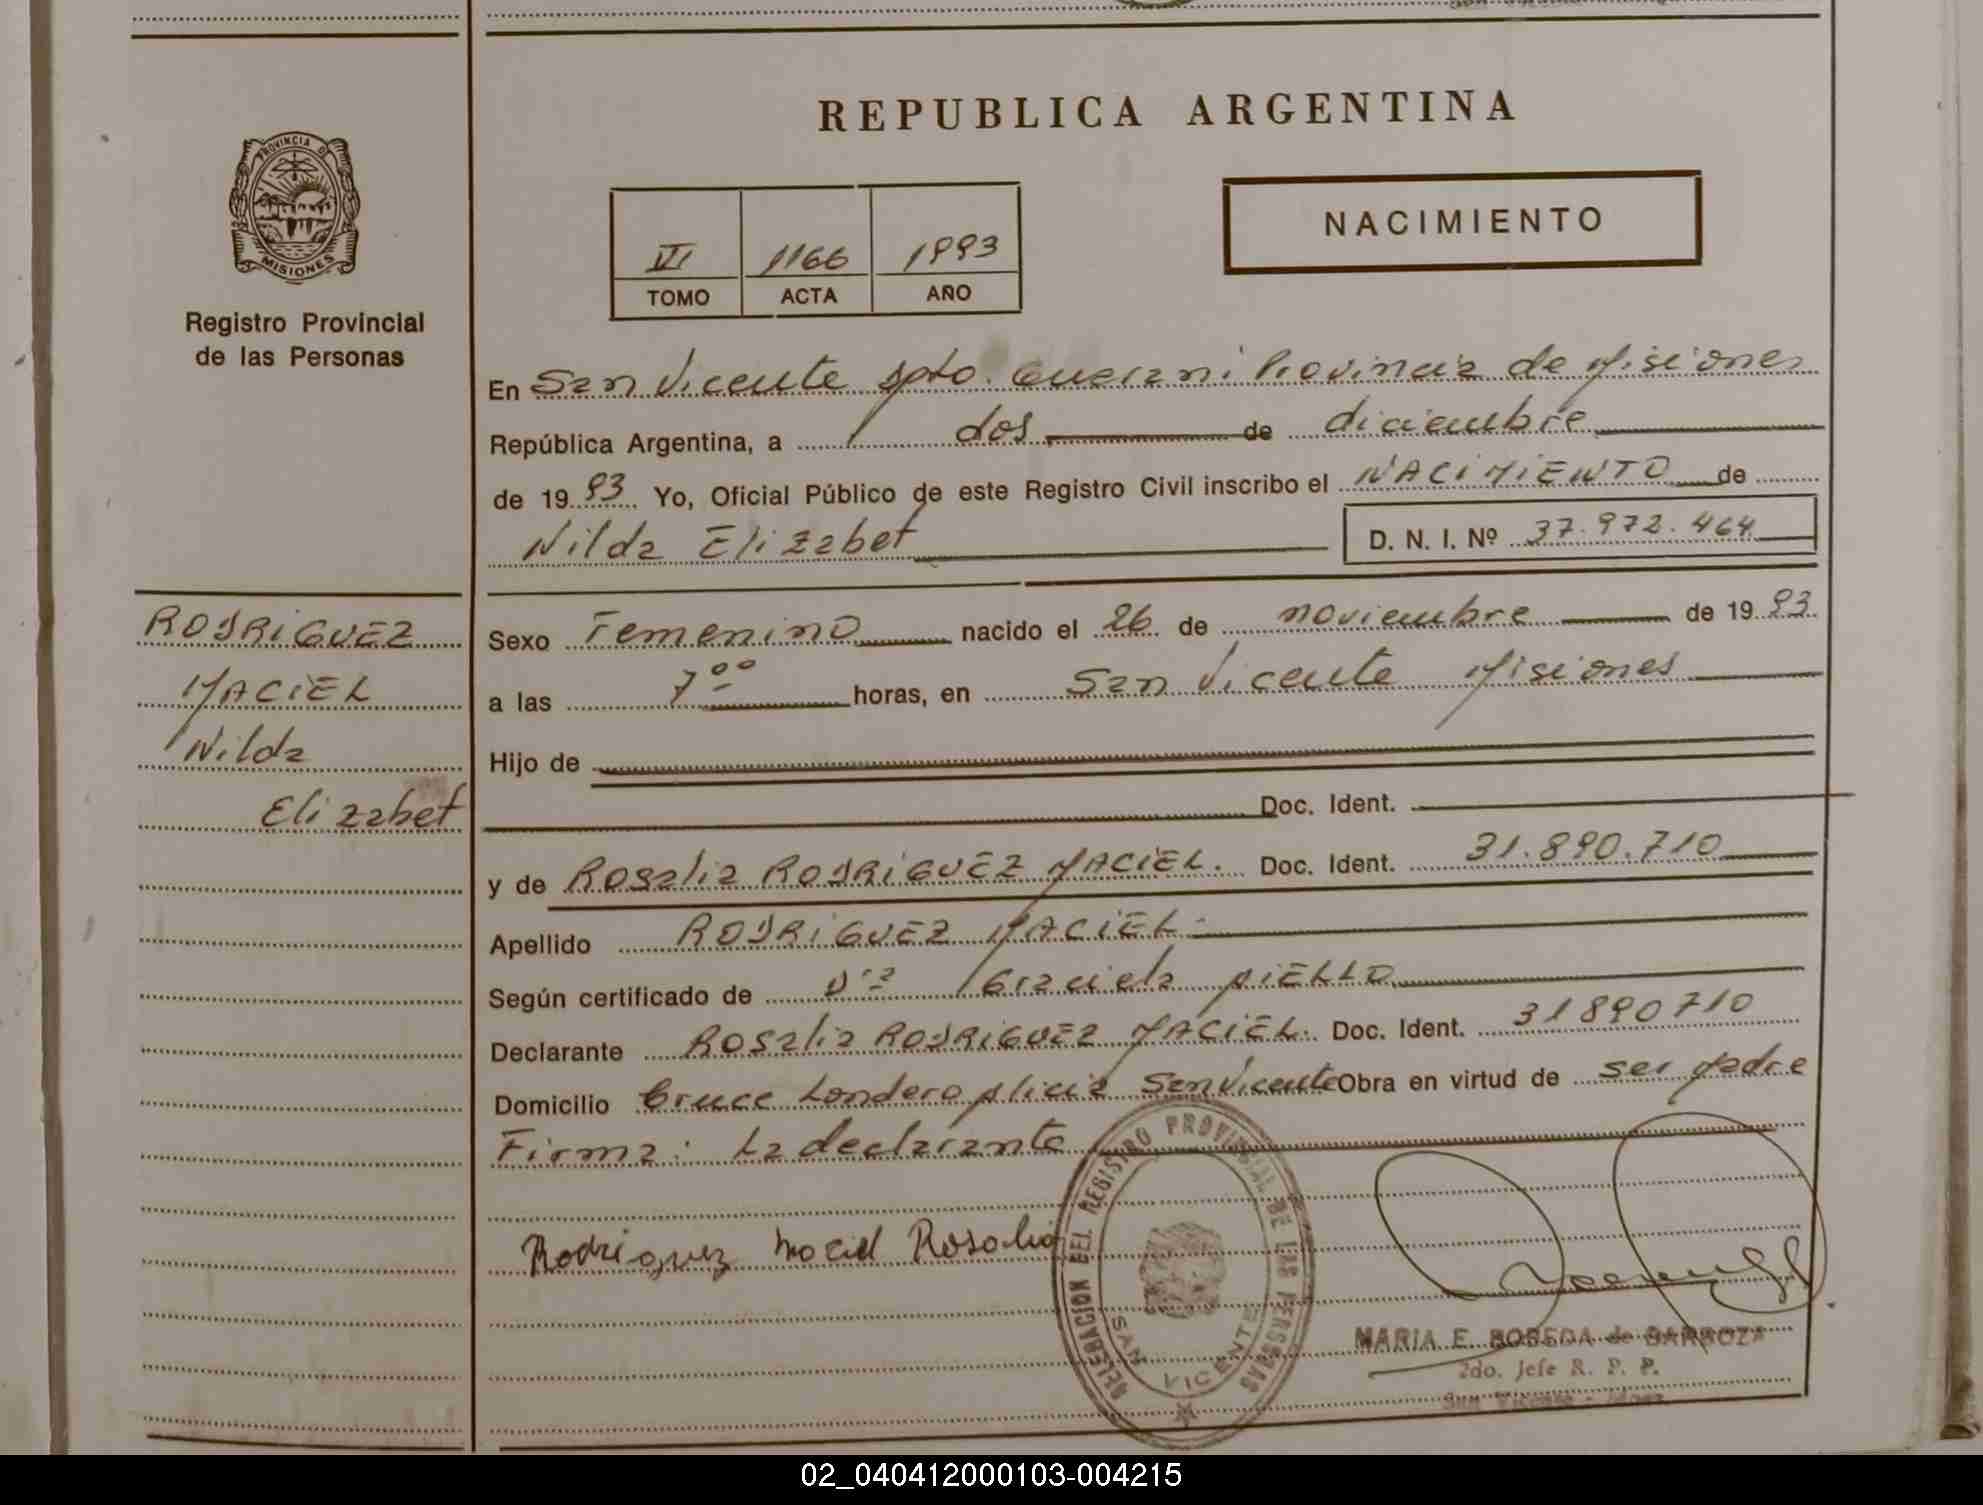 REPUBLICA ARGENTINA
PROVINCIA DE
MISIONES
Registro Provincial
de las Personas
VI 1166 1993
TOMO ACTA AÑO
NACIMIENTO
En San Vicente Dpto. Guarani Provincia de Misiones
República Argentina, a dos de diciembre
de 1993 Yo, Oficial Público de este Registro Civil inscribo el NACIMIENTO de
Nilda Elizabet D. N. I. Nº 37.972.464
RODRIGUEZ
MACIEL
Nilda
Elizabet
Sexo Femenino nacido el 26 de noviembre de 1993
a las 7ºº horas, en San Vicente Misiones
Hijo de
Doc. Ident.
y de Rosalia RODRIGUEZ MACIEL. Doc. Ident. 31.890.710
Apellido RODRIGUEZ MACIEL
Según certificado de Dra Graciela
Declarante Rosalia RODRIGUEZ MACIEL. Doc. Ident. 31890710
Domicilio Cruce Londero Alicia San Vicente Obra en virtud de ser Madre
Firma: La declarante
Rodriguez Maciel Rosalia
DELEGACION DEL REGISTRO PROVINCIAL DE LAS PERSONAS
SAN VICENTE
MARIA E. BOBEDA de BARROZA
2do. Jefe R. P. P.
San Vicente - Mnes.
02_040412000103-004215